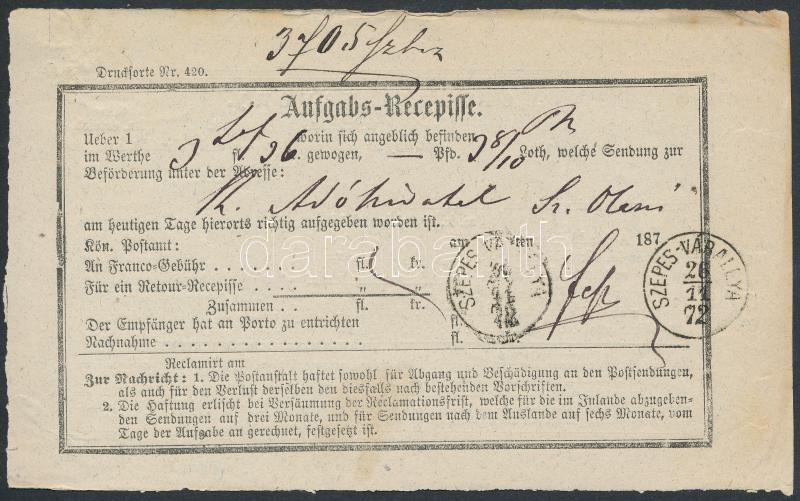 3705
Drucksorte Nr. 420.
Aufgabs-Recepisse.
Ueber 1 worin sich angeblich befinden
im Werthe 3 fl. 96 kr. gewogen, — Pfd. 3 8/10 Loth, welche Sendung zur
Beförderung unter der Adresse:
K. Adóhivatal Sz. Olaszi
am heutigen Tage hierorts richtig aufgegeben worden ist.
Kön. Postamt: am ten 187
An Franco-Gebühr . . . . . . . fl. kr.
Für ein Retour-Recepisse . . . . „ „
Zusammen . . fl. kr.
Der Empfänger hat an Porto zu entrichten fl.
Nachnahme . . . . . . . . . . . . . . . . . fl.
SZEPES-VÁRALLYA
SZEPES-VÁRALLYA
26
11
72
Reclamirt am
Zur Nachricht: 1. Die Postanstalt haftet sowohl für Abgang und Beschädigung an den Postsendungen,
als auch für den Verlust derselben den diesfalls nach bestehenden Vorschriften.
2. Die Haftung erlischt bei Versäumung der Reclamationsfrist, welche für die im Inlande abzugeben-
den Sendungen auf drei Monate, und für Sendungen nach dem Auslande auf sechs Monate, vom
Tage der Aufgabe an gerechnet, festgesetzt ist.
darabanth